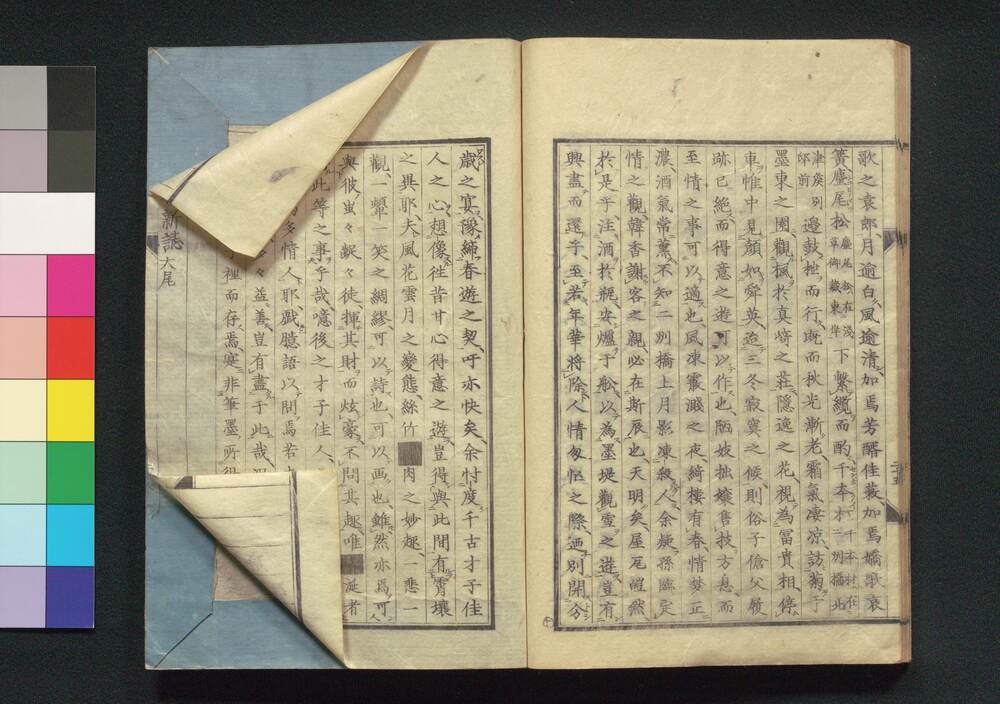 歌之衰郎月逾白風逾清加焉芳醑佳蓛加焉嬌歌哀
簧塵尾松塵尾松在淺草御藏東岸下繫纜而酌千本杭千本杭在二州橋北
津矦別邸前邉鼓枻而行既而秋光漸老霜氣凄凉訪菊于
墨東之園觀楓於真﨑之莊隱逸之花視為冨貴相停
車帷中見顔如舜英迨三冬寂寞之候則俗子傖父屐
跡已絶而得意之遊可以作也陋妓拙孃售技方息而
至情之事可以適也風凍霰濺之夜綺樓有春情夢正
濃酒氣常薰不知二州橋上月影凍殺人余
情之觀韓香謝客之親必在斯辰也天明矣屋瓦皚然
於是乎注酒於瓶安爐于舩以為墨堤觀雪之遊豈有
興盡而還乎至若年華將除人情匆忙之際洒別開分
歲之宴豫締春遊之契吁亦快矣余忖度千古才子佳
人之心想像徃昔甘心得意之遊豈得與此間有霄壤
之異耶夫風花雲月之變態絲竹肉之妙趣一悲一
觀一顰一笑之綢繆可以詩也可以画也雖然亦焉可
與彼䖝々蚩々徒揮其財而炫豪不問其趣唯涎者
此等之事乎哉噫後之才子佳人
多情人耶戲臆語以問焉若
々益善豈有盡于此哉
裡而存焉寔非筆墨所
新誌大尾